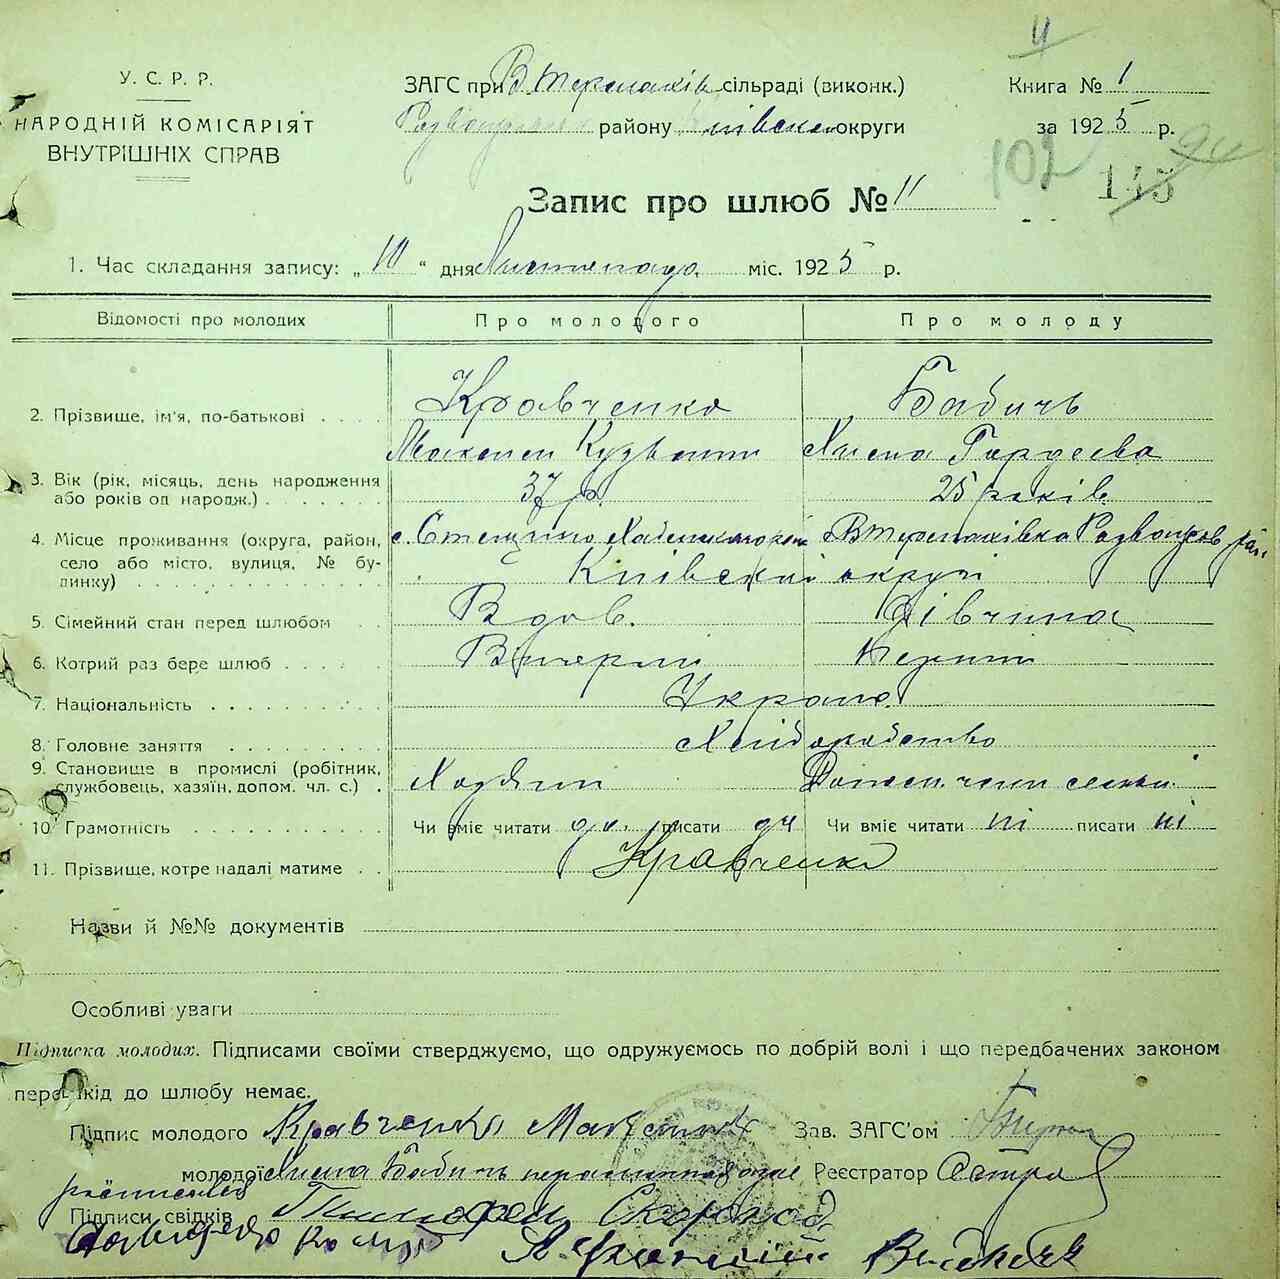 У. С. Р. Р.
НАРОДНІЙ КОМІСАРІЯТ
ВНУТРІШНІХ СПРАВ
ЗАГС при В Термахів сільраді (виконк.)
району Київської округи
Книга № 1
за 1925 р.
102
145
Запис про шлюб № 11
1. Час складання запису: „10“ дня Листопада міс. 1925 р.
Відомості про молодих Про молодого Про молоду
2. Прізвище, ім'я, по-батькові Кравченко Бабичъ
Максим Гордеева
3. Вік (рік, місяць, день народження або років од народж.) 37 р. 25 років
4. Місце проживання (округа, район, село або місто, вулиця, № будинку)
Київской округи
5. Сімейний стан перед шлюбом Вдов. Дівчина
6. Котрий раз бере шлюб Вторий Перший
7. Національність Україн.
8. Головне заняття Хліборобство
9. Становище в промислі (робітник, службовець, хазяїн, допом. чл. с.) Хозяїн
10 Грамотність Чи вміє читати да писати да Чи вміє читати ні писати ні
11. Прізвище, котре надалі матиме Кравченко
Назви й №№ документів
Особливі уваги
Підписка молодих. Підписами своїми стверджуємо, що одружуємось по добрій волі і що передбачених законом
перешкід до шлюбу немає.
Підпис молодого Кравченко Максим Зав. ЗАГС'ом
молодої Бабичъ Реєстратор
Підписи свідків Тимофей Скороход